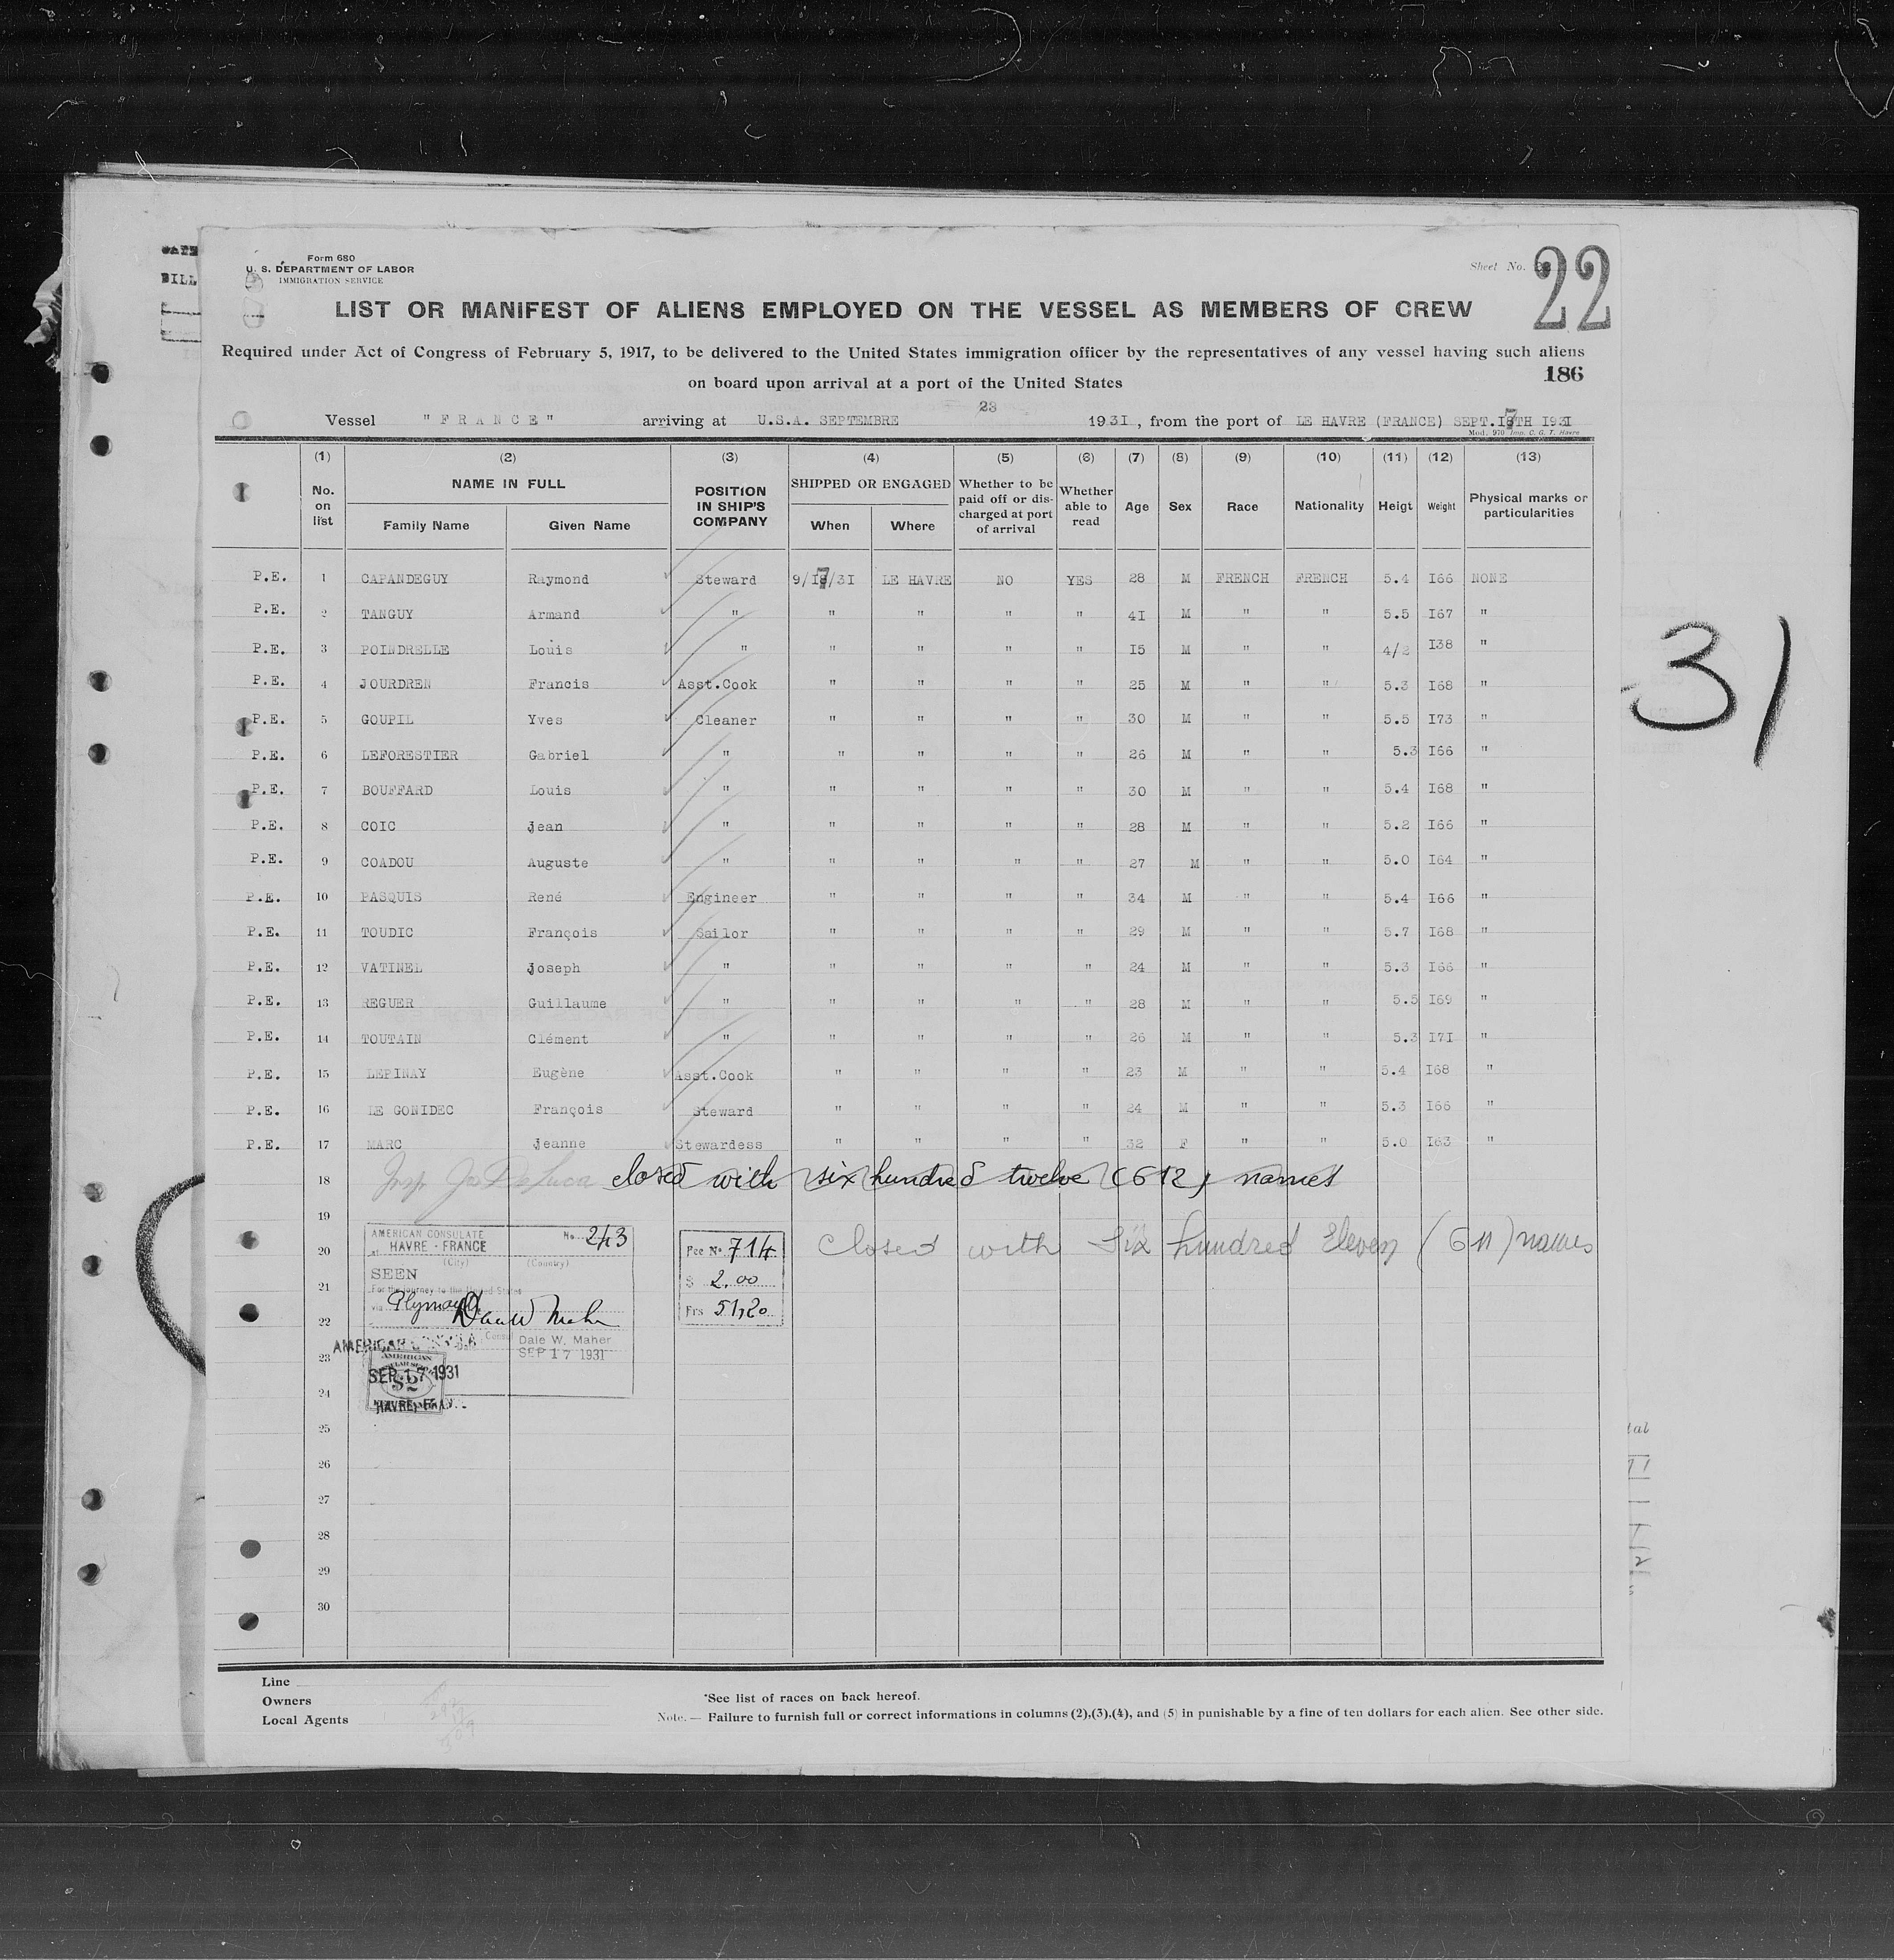 Form 680
U. S. DEPARTMENT OF LABOR
IMMIGRATION SERVICE
Sheet No. 22
LIST OR MANIFEST OF ALIENS EMPLOYED ON THE VESSEL AS MEMBERS OF CREW
Required under Act of Congress of February 5, 1917, to be delivered to the United States immigration officer by the representatives of any vessel having such aliens
on board upon arrival at a port of the United States
186
23
Vessel "FRANCE" arriving at U.S.A. SEPTEMBRE 1931, from the port of LE HAVRE (FRANCE) SEPT.I7TH I931
Mod. 970 Imp. C. G. T. Havre
(1) (2) (3) (4) (5) (6) (7) (8) (9) (10) (11) (12) (13)
No. on list NAME IN FULL Family Name Given Name POSITION IN SHIP'S COMPANY SHIPPED OR ENGAGED When Where Whether to be paid off or discharged at port of arrival Whether able to read Age Sex Race Nationality Heigt Weight Physical marks or particularities
P.E. 1 CAPANDEGUY Raymond Steward 9/I7/3I LE HAVRE NO YES 28 M FRENCH FRENCH 5.4 I66 NONE
P.E. 2 TANGUY Armand " " " " " 4I M " " 5.5 I67 "
P.E. 3 POINDRELLE Louis " " " " " I5 M " " 4/2 I38 "
P.E. 4 JOURDREN Francis Asst.Cook " " " " 25 M " " 5.3 I68 "
P.E. 5 GOUPIL Yves Cleaner " " " " 30 M " " 5.5 I73 "
P.E. 6 LEFORESTIER Gabriel " " " " " 26 M " " 5.3 I66 "
P.E. 7 BOUFFARD Louis " " " " " 30 M " " 5.4 I68 "
P.E. 8 COIC Jean " " " " " 28 M " " 5.2 I66 "
P.E. 9 COADOU Auguste " " " " " 27 M " " 5.0 I64 "
P.E. 10 PASQUIS René Engineer " " " " 34 M " " 5.4 I66 "
P.E. 11 TOUDIC François Sailor " " " " 29 M " " 5.7 I68 "
P.E. 12 VATINEL Joseph " " " " " 24 M " " 5.3 I66 "
P.E. 13 REGUER Guillaume " " " " " 28 M " " 5.5 I69 "
P.E. 14 TOUTAIN Clément " " " " " 26 M " " 5.3 I7I "
P.E. 15 LEPINAY Eugène Asst.Cook " " " " 23 M " " 5.4 I68 "
P.E. 16 LE GONIDEC François Steward " " " " 24 M " " 5.3 I66 "
P.E. 17 MARC Jeanne Stewardess " " " " 32 F " " 5.0 I63 "
18 closed with six hundred twelve (612) names
19
20 Closed with Six hundred Eleven (611) names
AMERICAN CONSULATE No. 243
at HAVRE - FRANCE
(City) (Country)
SEEN
For the journey to the United States
via Plymouth
Dale W. Maher
SEP 17 1931
SEP 17 1931
Fee No. 714
$ 2.00
Frs 51,20
21
22
23
24
25
26
27
28
29
30
31
Line
Owners
Local Agents
*See list of races on back hereof.
Note. — Failure to furnish full or correct informations in columns (2),(3),(4), and (5) in punishable by a fine of ten dollars for each alien. See other side.